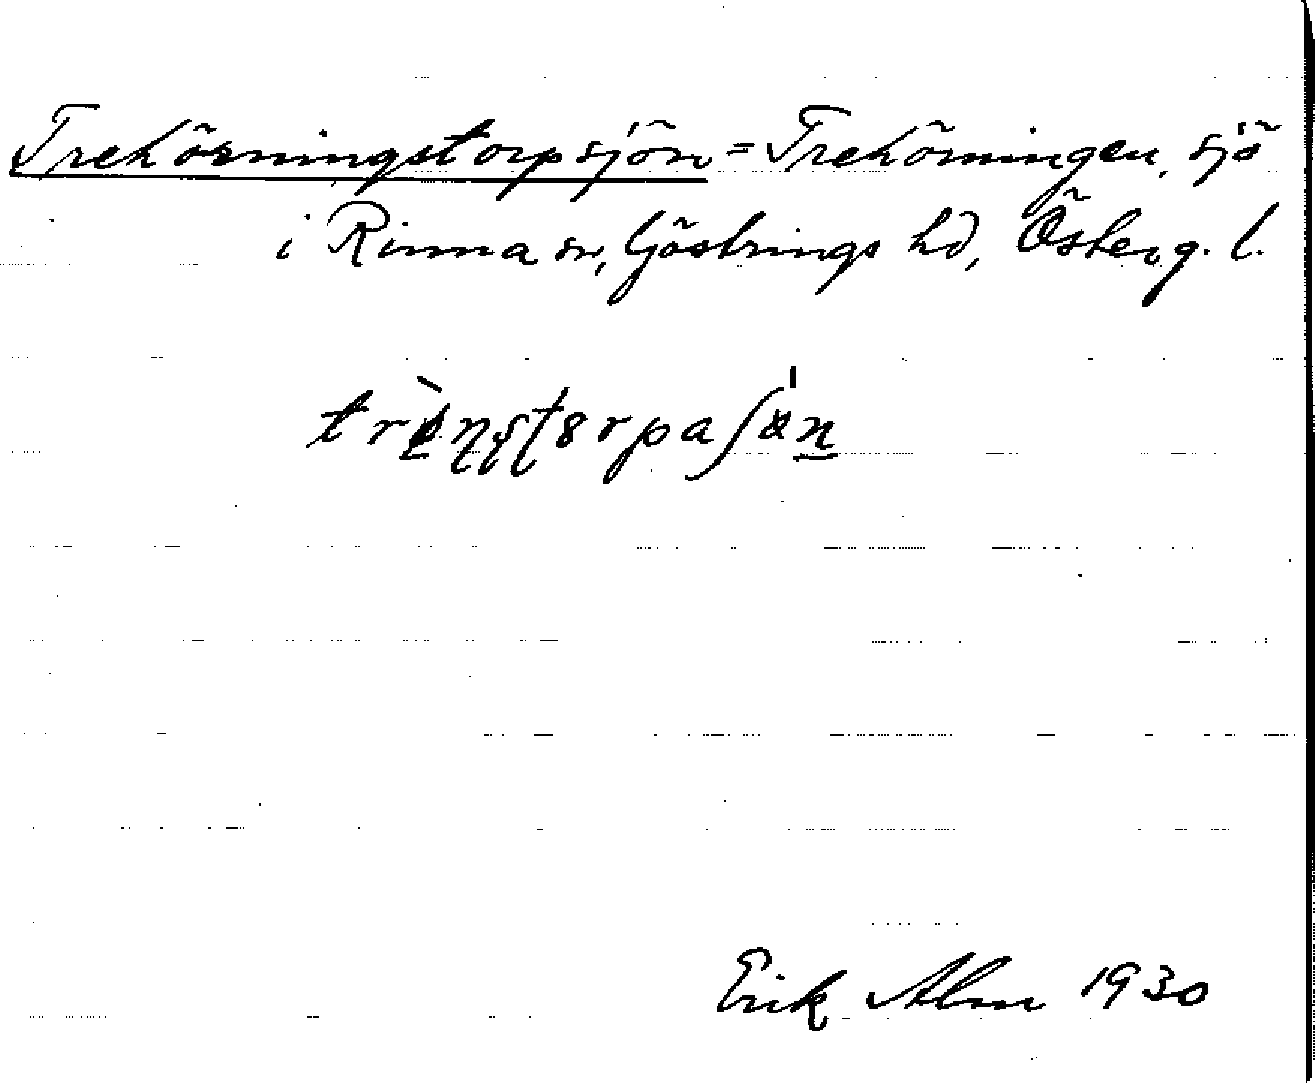 Trehörningstorpsjön = Trehörningen, sjö
i Rinna sn, Göstrings hd, Österg. l.
Erik Alm 1930